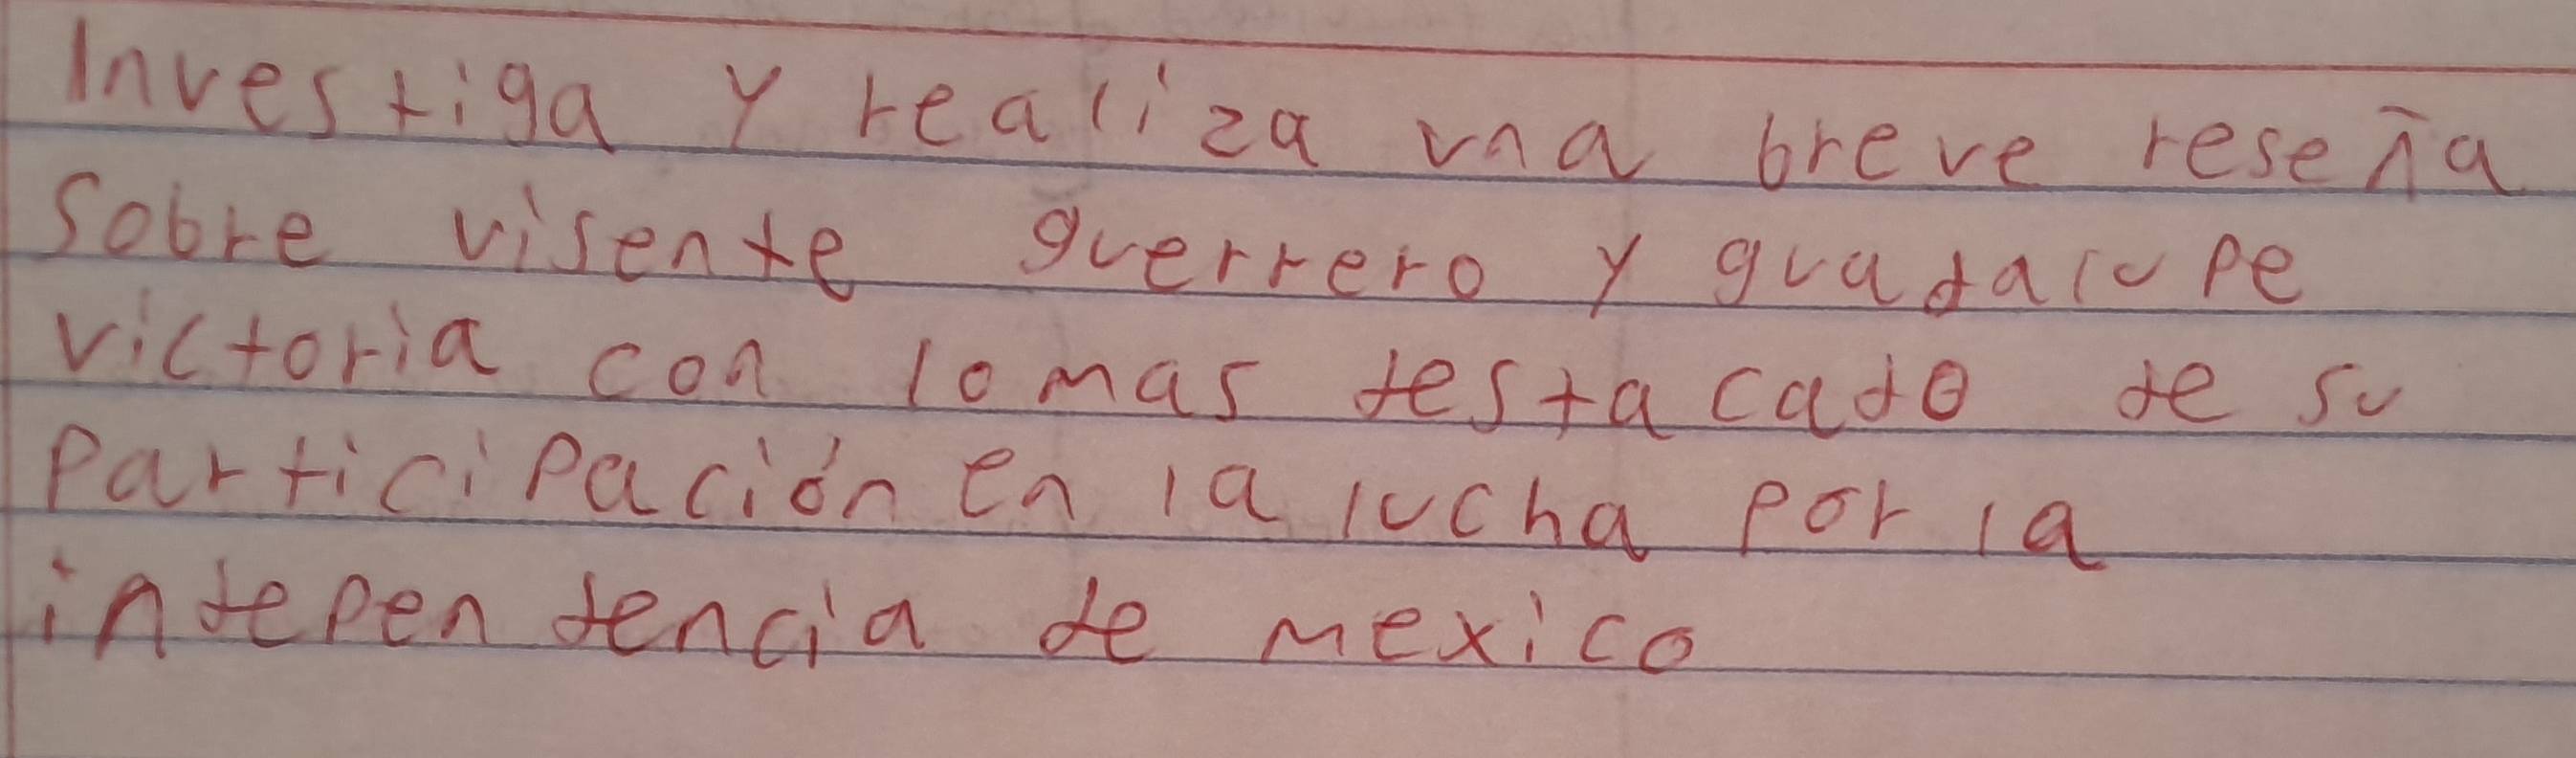 Investiga y realiza una breve reseña
sobre visente guerrero y guadalupe
victoria con lo mas destacado de su
participación en la lucha por la
independencia de mexico